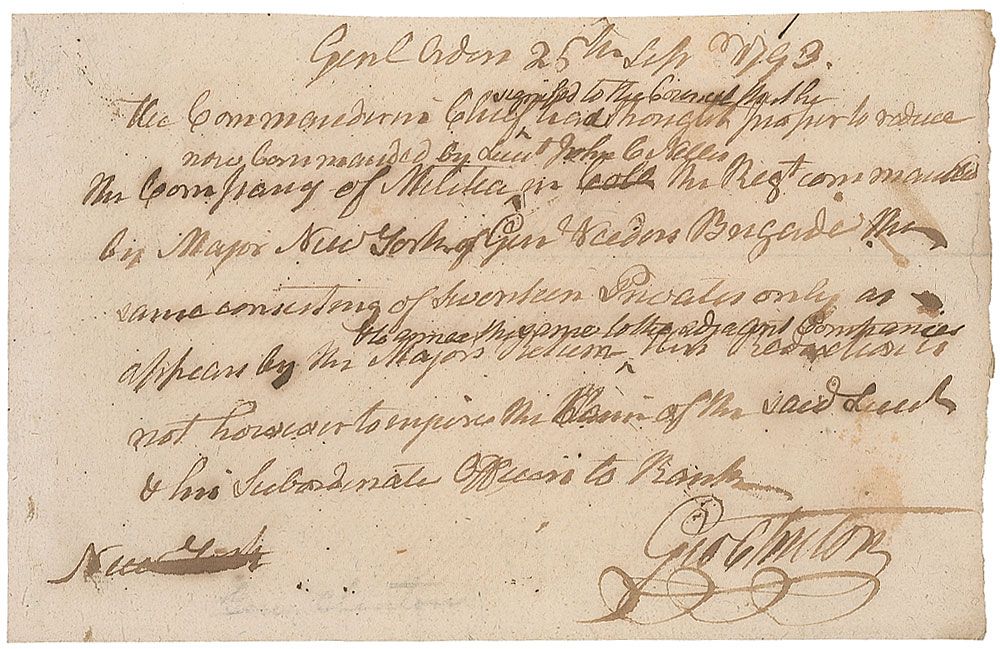 Genl Orders 25th Sepr 1793.
signified to the Council that he
the Commander in Chief had thought proper to reduce
now Commanded by Lieut John C
the Company of Militia in the Regt commanded
by Major New York of Gen Brigade the
same consisting of Seventeen Privates only as
to annex the same to the adjacent Companies
appears by the Majors Return this Reduction is
not however to impire the Claim of the said Lieut
& his Subordinate Officers to Rank
Geo Clinton
New York
Geo. Clinton